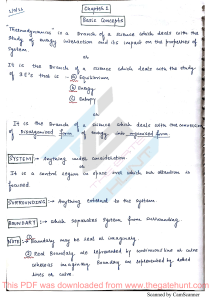 Chapter 1
Basic Concepts
"Thermodynamics" is a Branch of science which deals with the
study of energy interaction and its impact on the properties of
system.
or
It is the Branch of a science which deals with the study
of 3E's that is - (a) Equilibrium
(b) Energy
(c) Entropy
or
It is the Branch of a science which deals with the conversion
of Disorganized form of Energy into organized form.
SYSTEM :- Anything under consideration
or
It is a control region in space on which our attention is
focused.
SURROUNDING :- Anything external to the system.
BOUNDARY :- which separates system from surrounding
NOTE :- ① Boundary may be real or imaginary.
② Real Boundary are represented by continuous line or curve
whereas imaginary Boundary is represented by dotted
lines or curve.
This PDF was downloaded from www.thegatehunt.com
Scanned by CamScanner